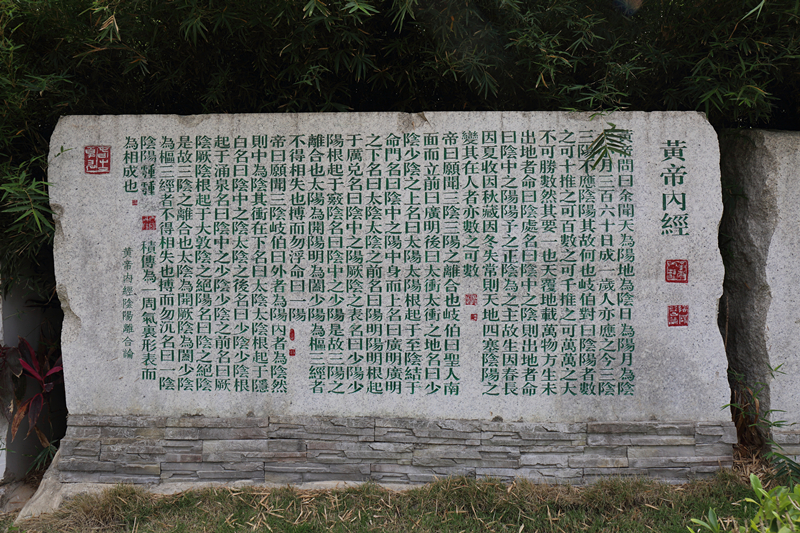 黃帝內經
黃帝問曰余聞天為陽地為陰日為陽月為陰
月三百六十日成一歲人亦應之今三陰
三陽不應陰陽其故何也岐伯對曰陰陽者數
之可十推之可百數之可千推之可萬萬之大
不可勝數然其要一也天覆地載萬物方生未
出地者命曰陰處名曰陰中之陰則出地者命
曰陰中之陽陽予之正陰為之主故生因春長
因夏收因秋藏因冬失常則天地四塞陰陽之
變其在人者亦數之可數
帝曰願聞三陰三陽之離合也岐伯曰聖人南
面而立前曰廣明後曰太衝太衝之地名曰少
陰少陰之上名曰太陽太陽根起于至陰結于
命門名曰陰中之陽中身而上名曰廣明廣明
之下名曰太陰太陰之前名曰陽明陽明根起
于厲兌名曰陰中之陽厥陰之表名曰少陽少
陽根起于竅陰名曰陰中之少陽是故三陽之
離合也太陽為開陽明為闔少陽為樞三經者
不得相失也搏而勿浮命曰一陽
帝曰願聞三陰岐伯曰外者為陽內者為陰然
則中為陰其衝在下名曰太陰太陰根起于隱
白名曰陰中之陰太陰之後名曰少陰少陰根
起于涌泉名曰陰中之少陰少陰之前名曰厥
陰厥陰根起于大敦陰之絕陽名曰陰之絕陰
是故三陰之離合也太陰為開厥陰為闔少陰
為樞三經者不得相失也搏而勿沉名曰一陰
陰陽 積傳為一周氣裏形表而
為相成也
黃帝內經陰陽離合論